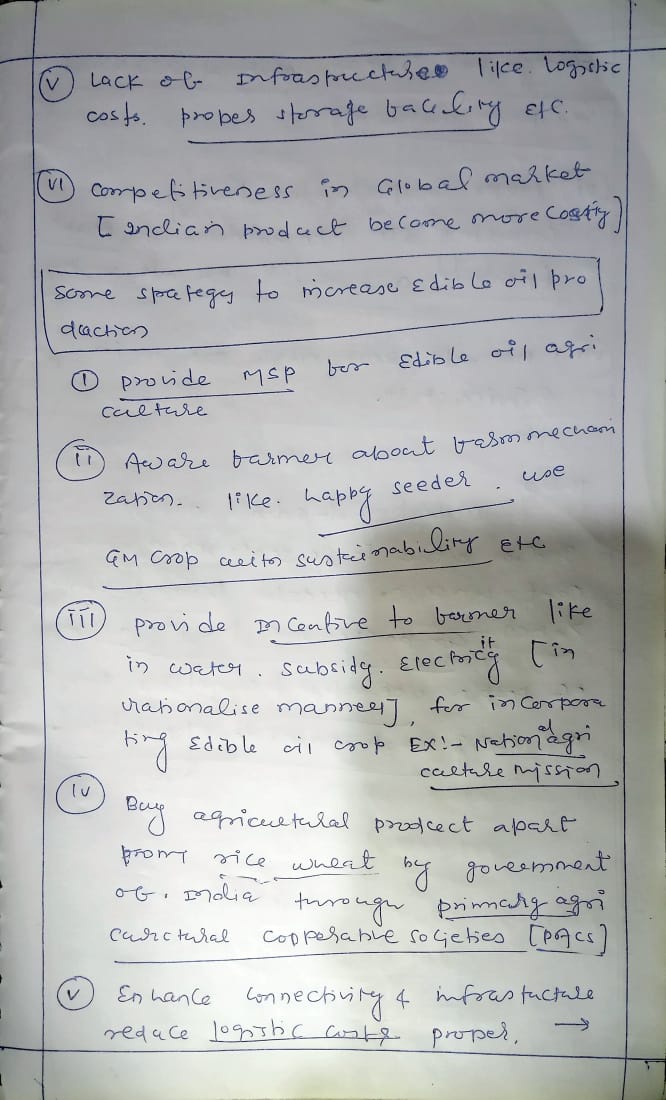 (v) Lack of Infrastructure like. logistic
costs. proper storage facility etc.
(vi) Competitiveness in Global market
[Indian product become more costly]
Some strategy to increase Edible oil pro
duction
(i) provide MSP for Edible oil agri
culture
(ii) Aware farmer about farm mechani
zation. like. happy seeder. use
GM crop with sustainability etc
(iii) provide Incentive to farmer like
in water. subsidy. Electricity [in
rationalise manner], for incorpora
ting Edible oil crop EX:- National agri
culture mission
(iv) Buy agricultural product apart
from rice wheat by government
of. India through primary agri
cultural cooperative societies [PACS]
(v) Enhance connectivity & infrastucture
reduce logistic costs proper. →